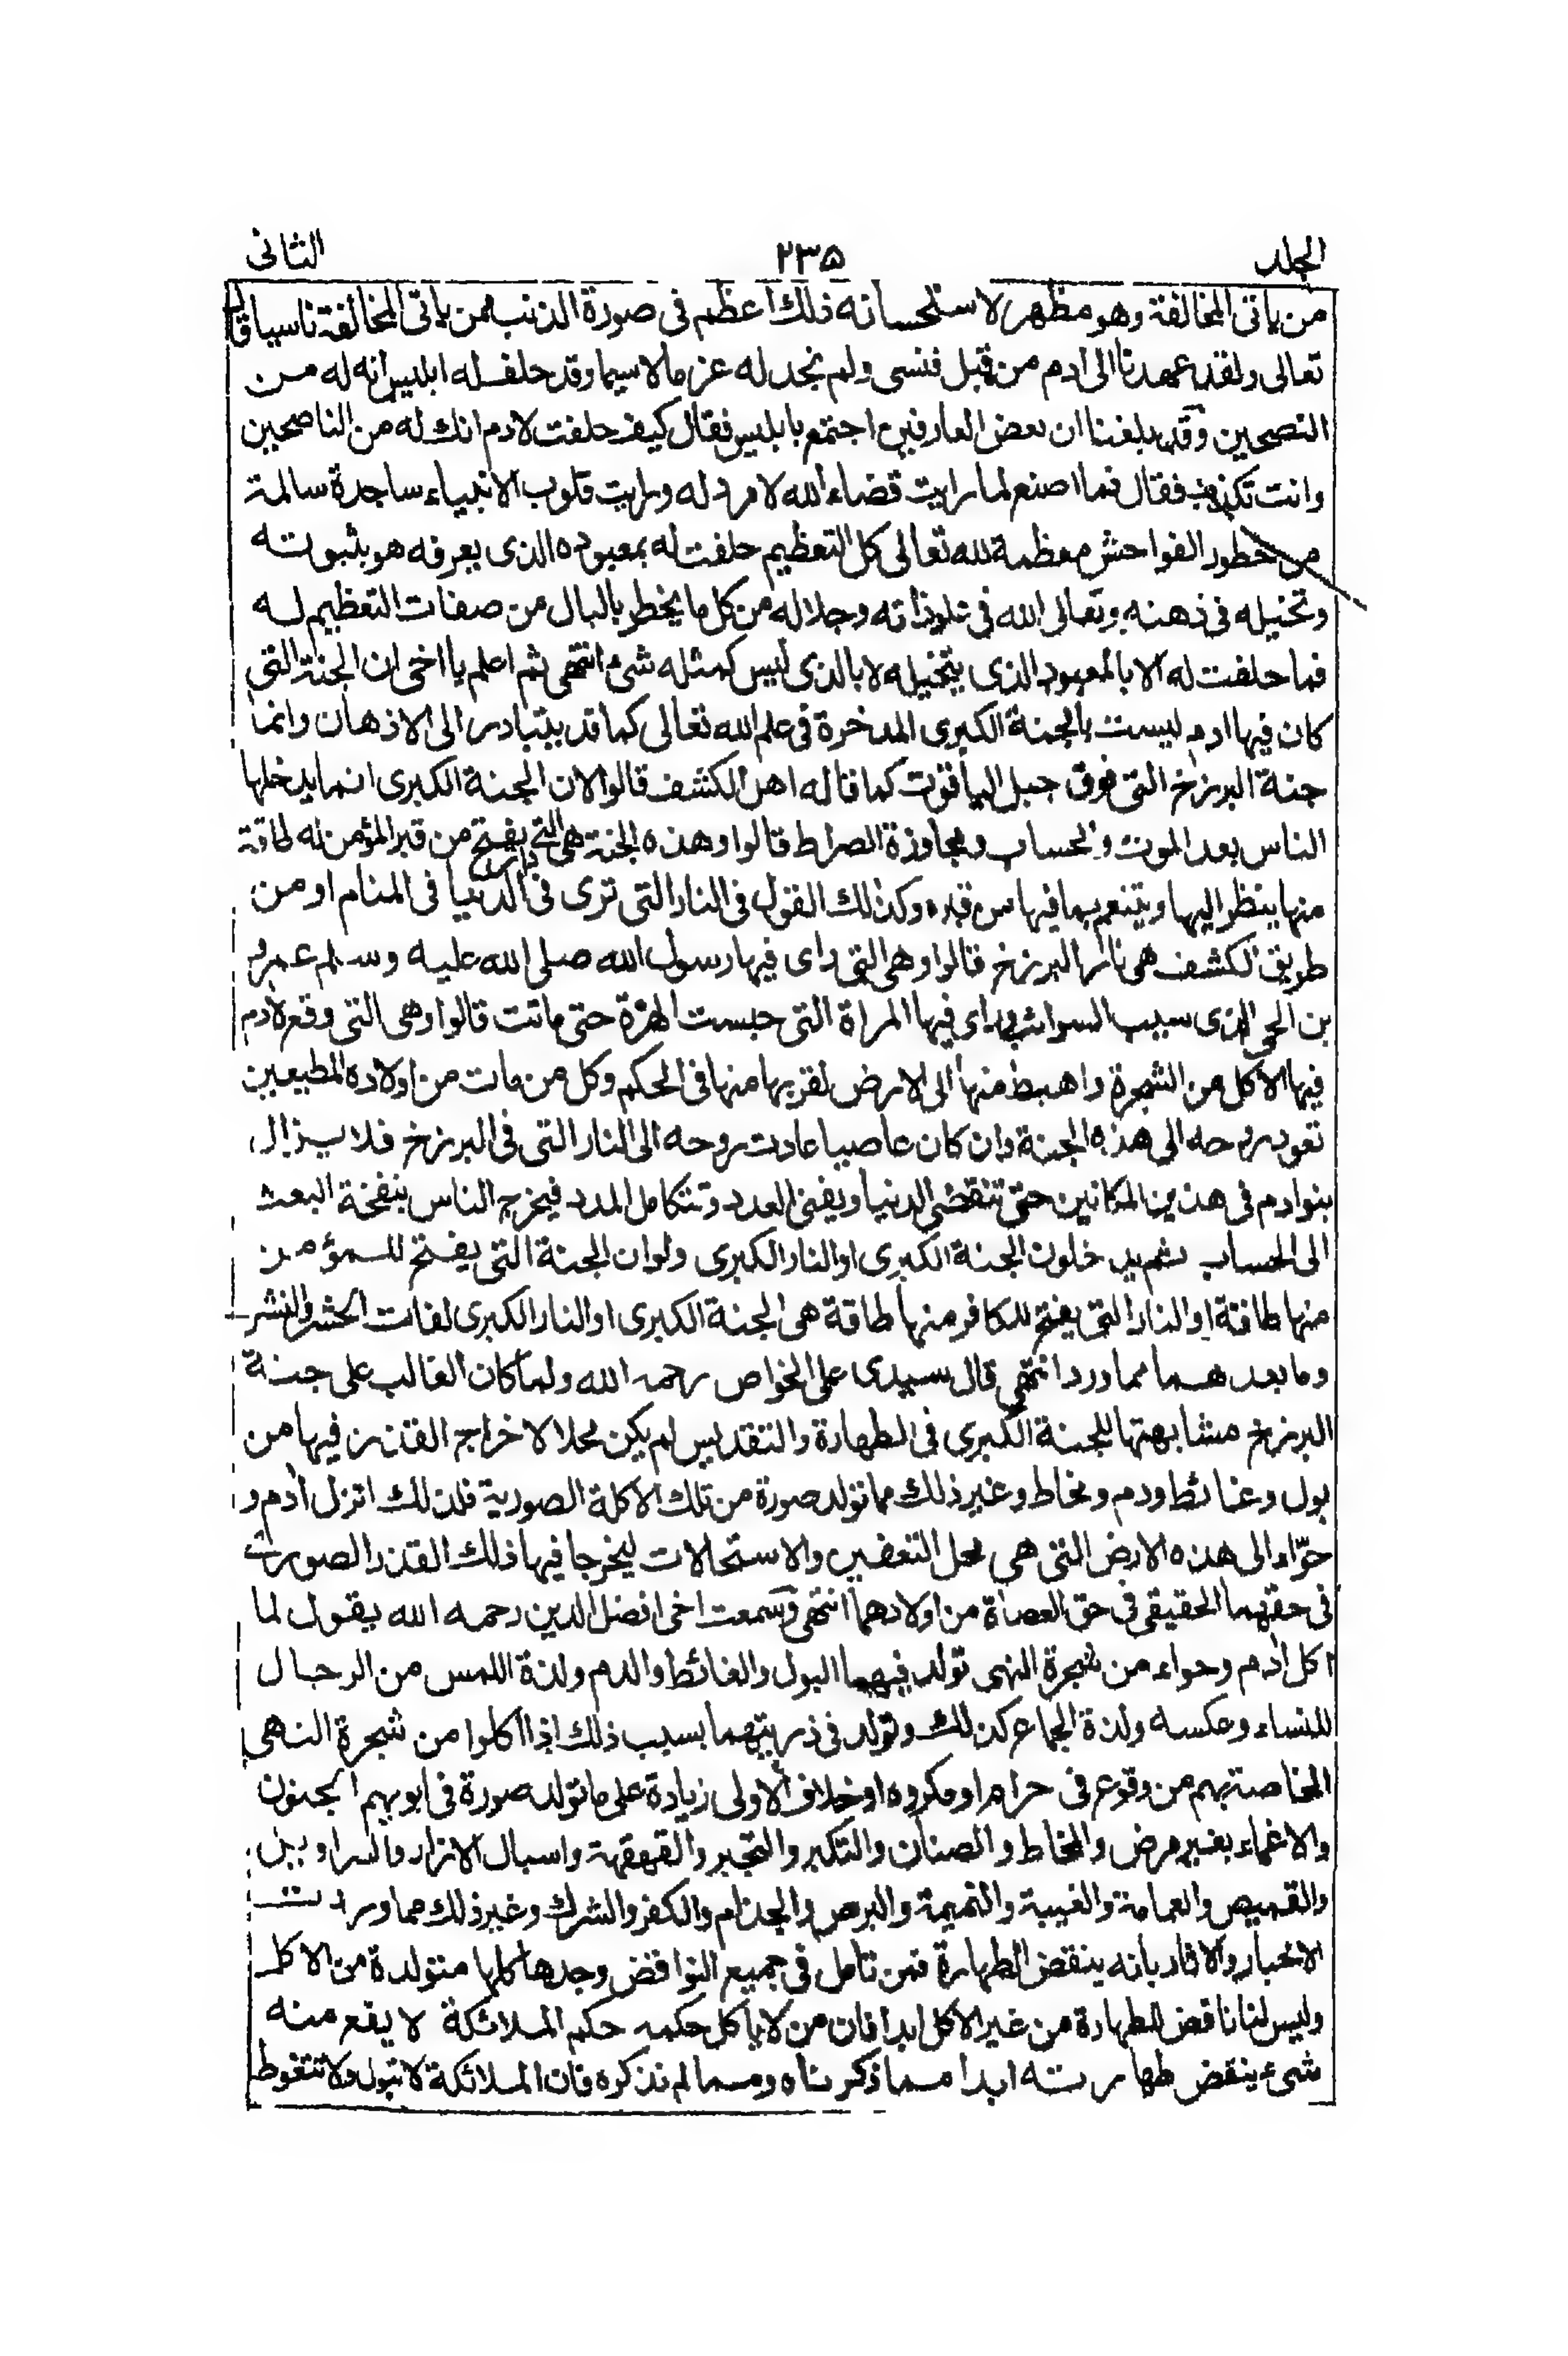 الجلد ۲۳۵ الثانی
من یاتی المخالفة وهو مظهر لاستحسانه ذلك اعظم فی صورة الذنب ممن یاتی المخالفة ناسیا قال
تعالی ولقد عهدنا الی ادم من قبل فنسی ولم نجد له عزما لاسیما وقد حلف له ابلیس انه له من
النصحین وقد بلغنا ان بعض العارفین اجتمع بابلیس فقال کیف حلفت لادم انك له من الناصحین
وانت تکذب فقال فما اصنع لما رایت قضاء الله لا مرد له ورایت قلوب الانبیاء ساجدة سالمة
من خطور الفواحش معظمة لله تعالی کل التعظیم حلفت له بمعبوده الذی یعرفه هو بثبوته
وتخیله فی ذهنه وتعالی الله فی علو ذاته وجلاله من کل ما یخطر بالبال من صفات التعظیم له
فما حلفت له الا بالمعبود الذی یتخیله لا بالذی لیس کمثله شئ انتهی ثم اعلم یا اخی ان الجنة التی
کان فیها ادم لیست بالجنة الکبری المدخرة فی علم الله تعالی کما قد یتبادر الی الاذهان وانما
جنة البرزخ التی فوق جبل الیاقوت کما قاله اهل الکشف قالوا لان الجنة الکبری انما یدخلها
الناس بعد الموت والحساب ومجاوزة الصراط قالوا وهذه الجنة هی التی یفتح من قبر المؤمن له طاقة
منها ینظر الیها ویتنعم بما فیها من قبره وکذلك القول فی النار التی تری فی دار الدنیا فی المنام او من
طریق الکشف هی نار البرزخ قالوا وهی التی رای فیها رسول الله صلی الله علیه وسلم عمرو
بن لحی الذی سیب السوائب ورای فیها المراة التی حبست الهرة حتی ماتت قالوا وهی التی وقع لادم
فیها الاکل من الشجرة واهبط منها الی الارض لقربها منها فی الحکم وکل من مات من اولاده المطیعین
تعود روحه الی هذه الجنة وان کان عاصیا عادت روحه الی النار التی فی البرزخ فلا یزال
بنوادم فی هذین المکانین حتی تنقضی الدنیا ویفنی العدد وتتکامل المدد فیخرج الناس بنفخة البعث
الی الحساب ثم یدخلون الجنة الکبری او النار الکبری ولوان الجنة التی یفتح للمؤمن
منها طاقة او النار التی یفتح للکافر منها طاقة هی الجنة الکبری او النار الکبری لفات الحشر والنشر
وما بعدهما مما ورد انتهی قال سیدی علی الخواص رحمه الله ولما کان الغالب علی جنة
البرزخ مشابهتها للجنة الکبری فی الطهارة والتقدیس لم یکن محلا لاخراج القذر فیها من
بول وغائط ودم ومخاط وغیر ذلك مما تولد صورة من تلك الاکلة الصوریة فلذلك انزل ادم و
حوّاء الی هذه الارض التی هی محل التعفین والاستحالات لیخرجا فیها ذلك القذر الصوری
فی حقهما الحقیقی فی حق العصاة من اولادهما انتهی وسمعت اخی افضل الدین رحمه الله یقول لما
اکل ادم وحواء من شجرة النهی تولد فیهما البول والغائط والدم ولذة اللمس من الرجال
للنساء وعکسه ولذة الجماع کذلك وتولد فی ذریتهما بسبب ذلك اذا اکلوا من شجرة النهی
الخاصة بهم من وقوع فی حرام او مکروه او خلاف الاولی زیادة علی ما تولد صورة فی ابویهم الجنون
والاغماء بغیر مرض والمخاط والصنان والتکبر والتجبر والقهقهة واسبال الازار والسراویل
والقمیص والعمامة والغیبة والنمیمة والبرص والجذام والکفر والشرك وغیر ذلك مما وردت
الاخبار والاثار بانه ینقض الطهارة فمن تامل فی جمیع النواقض وجدها کلها متولدة من الاکل
ولیس لنا ناقض للطهارة من غیر الاکل ابدا فان من لا یاکل حکمه حکم الملائکة لا یقع منه
شئ ینقض طهارته ابدا مما ذکرناه ومما لم نذکره فان الملائکة لا تبول ولا تتغوط